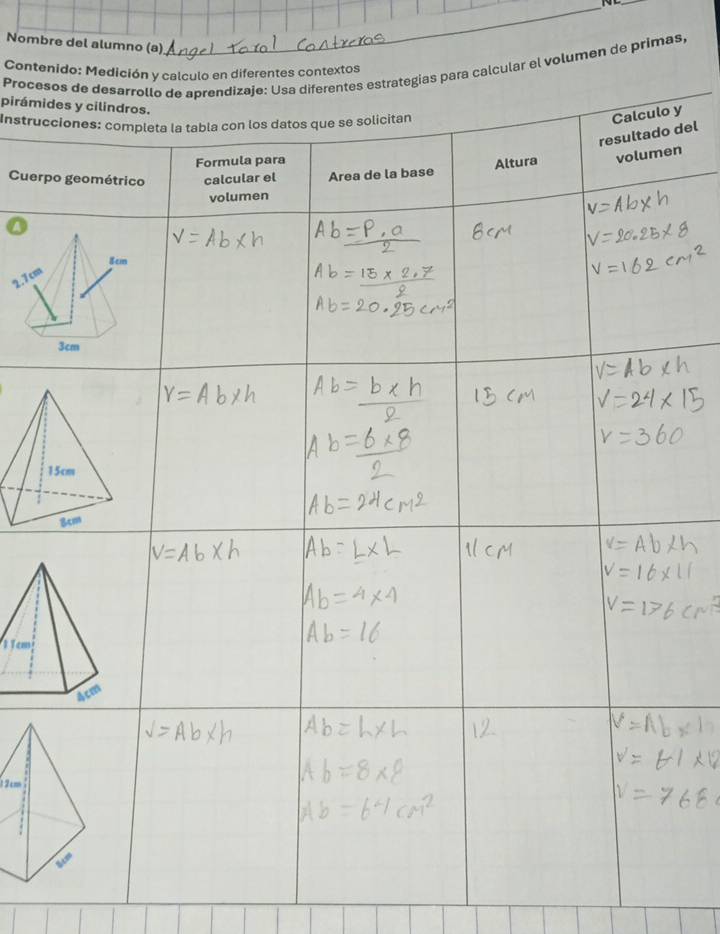 Nombre del alumno (a) Angel Toral Contreras
Contenido: Medición y calculo en diferentes contextos
Procesos de desarrollo de aprendizaje: Usa diferentes estrategias para calcular el volumen de primas,
pirámides y cilindros.
Instrucciones: completa la tabla con los datos que se solicitan
Cuerpo geométrico
Formula para
calcular el
volumen
Area de la base
Altura
Calculo y
resultado del
volumen
A
8cm
2.7cm
3cm
V=Abxh
Ab=P.a
2
Ab=15x2.7
2
Ab=20.25cm²
8cm
V=Abxh
V=20.25x8
V=162 cm²
15cm
8cm
V=Abxh
Ab=bxh
2
Ab=6x8
2
Ab=24cm2
15 cm
V=Abxh
V=24x15
V=360
11cm
4cm
V=Abxh
Ab=LxL
Ab=4x4
Ab=16
11cm
V=Abxh
V=16x11
V=176 cm
12cm
8cm
V=Abxh
Ab=LxL
Ab=8x8
Ab=64cm²
12
V=Abx
V=64x12
V=768